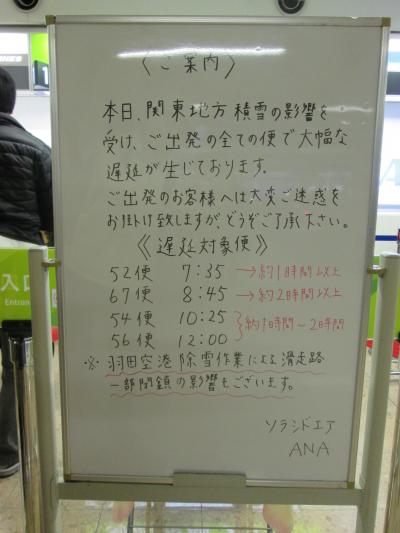 《ご案内》
本日、関東地方積雪の影響を
受け、ご出発の全ての便で大幅な
遅延が生じております。
ご出発のお客様へは大変ご迷惑を
お掛け致しますが、どうぞご了承下さい。
《遅延対象便》
52便 7:35 →約1時間以上
67便 8:45 →約2時間以上
54便 10:25 }約1時間～2時間
56便 12:00
※羽田空港除雪作業による滑走路
一部閉鎖の影響もございます。
ソラシドエア
ANA
入口
Entran